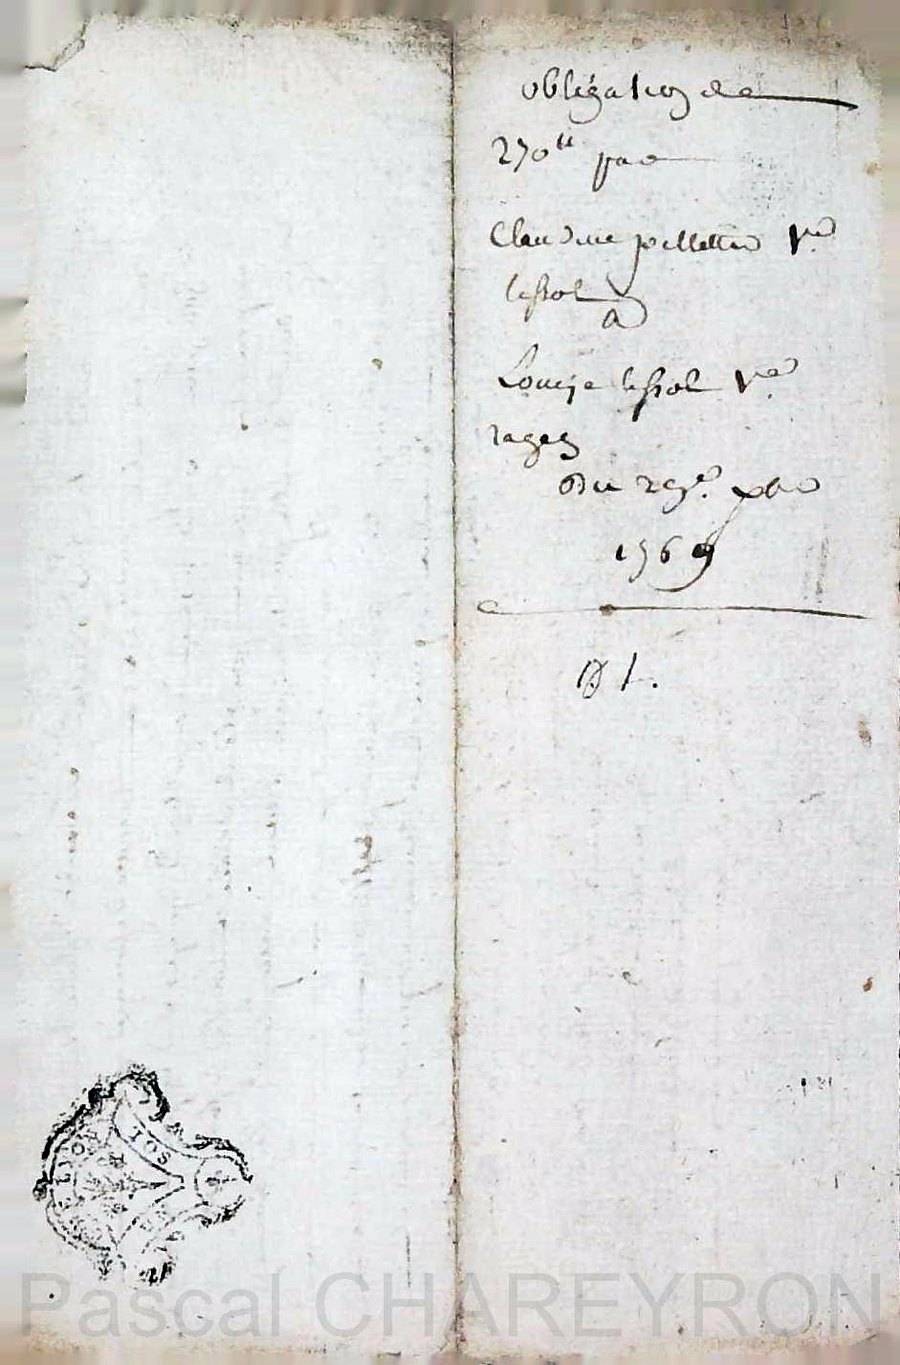 obligation de
270ᵗᵗ par
Claudine pellettier vᵉ
lessot
a
Louise lessot vᵉ
ragey
Du 29ᵉ. xbre
1769
SOL
Pascal CHAREYRON